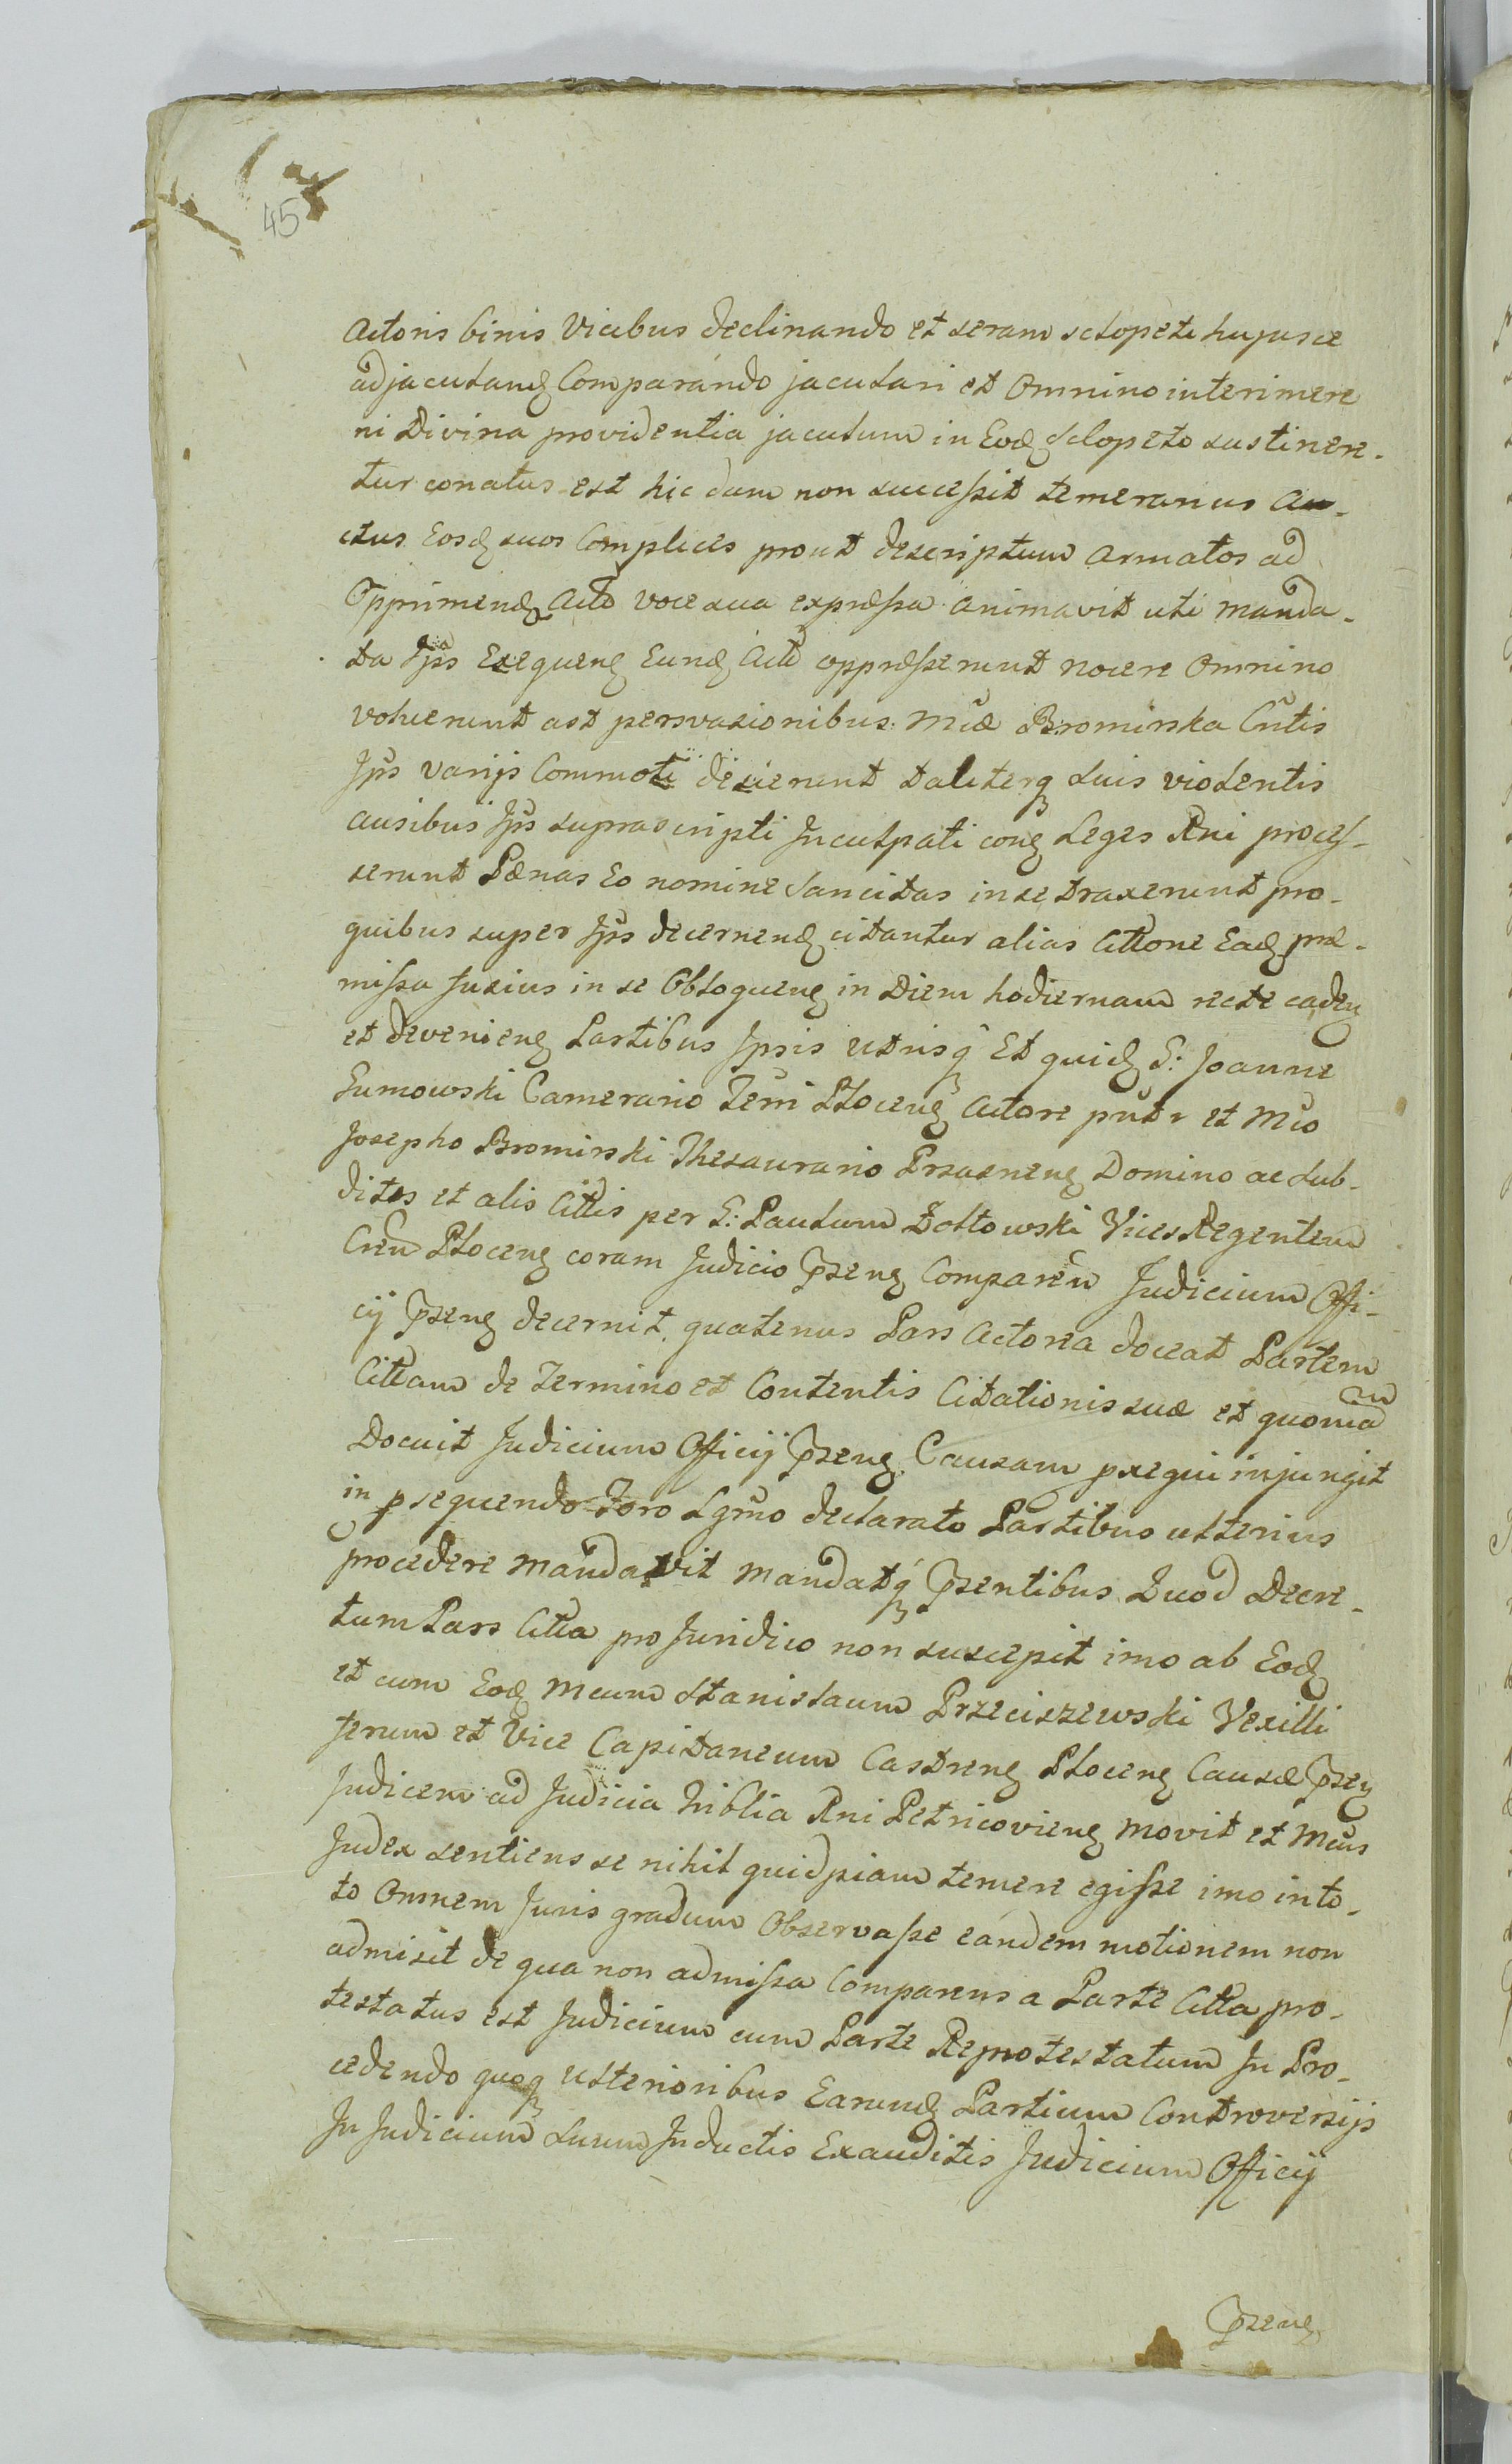 45
Actoris binis Vicibus declinando et seram sclopeti hujusce
ad jaculand Comparando jaculari et Omnino interimere
ni Divina providentia jaculum in Eod Sclopeto sustinere-
tur conatus est hic dum non successit temerarius au-
ctus Eosd suos Complices prout descriptum armatos ad
Opprimend Acto voce sua expressa animavit uti manda-
ta Ipŝ Exequen Eund Acto oppresserunt nocere Omnino
voluerunt ast persvasionibus Mcæ Bromirska Cntis
Ipŝ varijs Commoti desierunt taliterq suis violentis
ausibus Ipŝ suprascripti Inculpati con Leges Rni proces-
serunt Pænas Eo nomine Sancitas in se traxerunt pro
quibus super Ipŝ decernend citantur alias Cittone Ead præ-
missa fusius in se Obloquen in Diem hodiernam recte caden
et devenien Partibus Ipsis utrisq Et quid G: Joanne
Gumowski Camerario Terri Plocen Actore pntr et Mco
Josepho Bromirski Thesaurario Prasnen Domino ac Sub-
ditis et alis Cittis per G: Paulum Żołtowski Vices Regentem
Cren Plocen coram Judicio Psen Comparen Judicium Offi-
cij Psen decernit quatenus Pars Actorea doceat Partem
Cittam de Termino et Contentis Citationis suæ et quoniam
Docuit Judicium Officij Psen Causam pxequi injungit
in psequendo Foro Lgrmo declarato Partibus ulterius
procedere mandavit mandatq Psentibus Quod Decre-
tum Pars Citta pro Juridico non suscepit imo ab Eod
et cum Eod Mcum Stanislaum Przeciszewski Vexilli
ferum et Vice Capitaneum Castren Plocen Causæ Psen
Judicem ad Judicia Triblia Rni Petricovien movit et Mcus
Judex sentiens se nihil quidpiam temere egisse imo in to-
to Omnem Juris gradum Observasse eandem motionem non
admisit de qua non admissa Comparens a Parte Citta pro-
testatus est Judicium cum Parte Reprotestatum In Pro-
cedendo quoq Ulterioribus Earund Partium Controversijs
In Judicium Suum Inductis Exauditis Judicium Officij
Psen